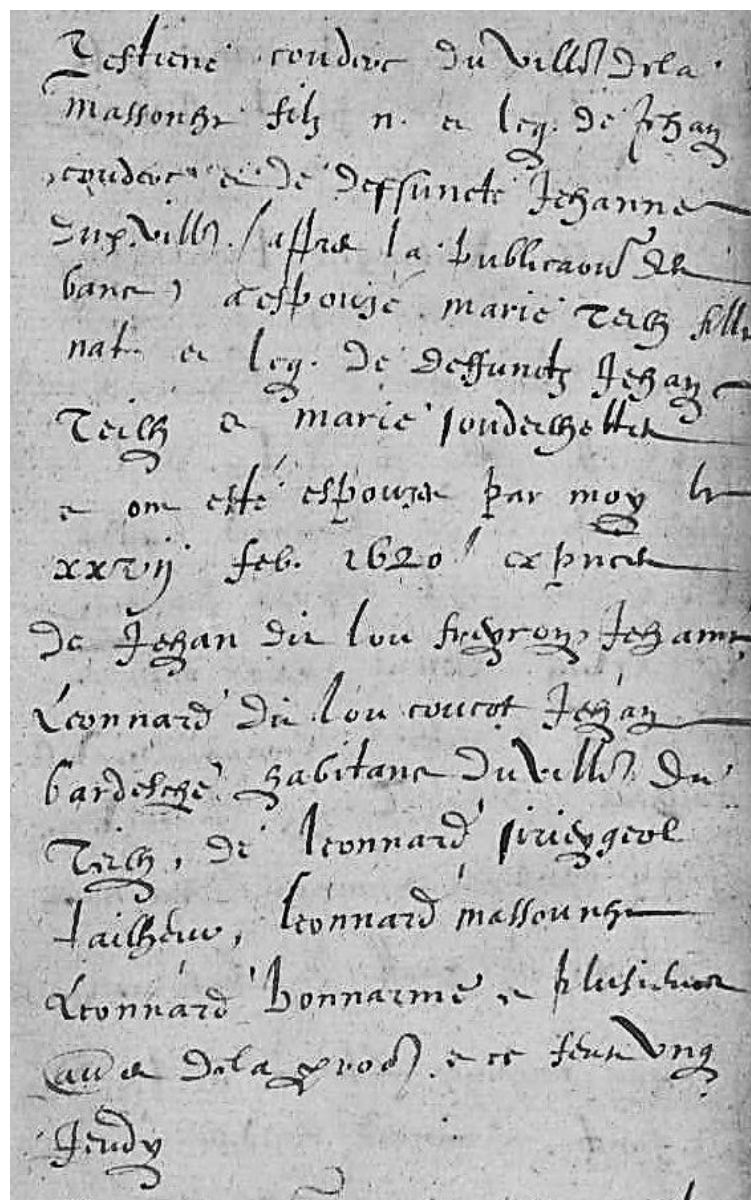 Estiene couderc du villa dela
massonye filz n. et leg. de Jehan
couderc et de deffuncte Jehanne
dud. villa. (apres la publicaon des
bans) a espouzé marie Teilh fille
nat. et leg. de deffunctz Jehan
Teilh et marie
et ont esté espouzes par moy le
xxvij feb. 1620 es pnces
de Jehan dit lou freyron, Jehan
Leonnard dit lou coucot Jehan
bardesche habitans du villa. du
Teilh, de leonnard
tailheur, leonnard massounye
Leonnard bonnarme, et plusieurs
au es dela proe. et ce feust ung
Jeudy